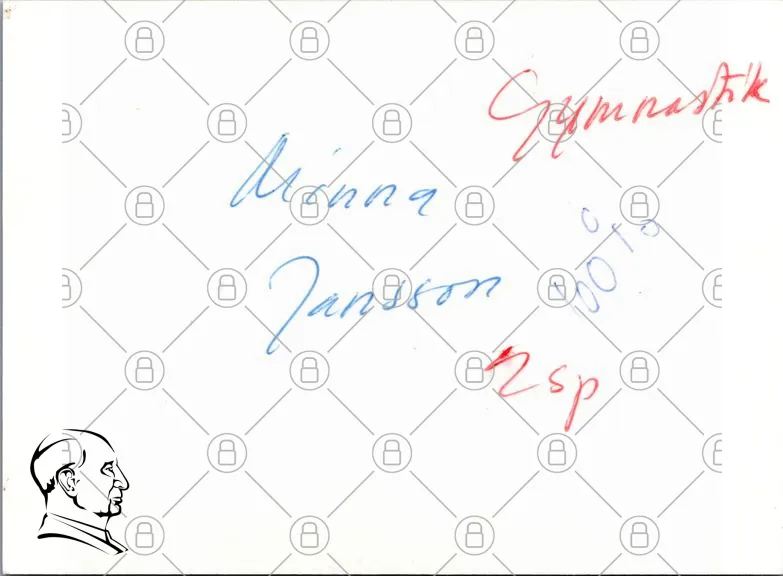 Gymnastik
Minna
100%
Jansson
2sp